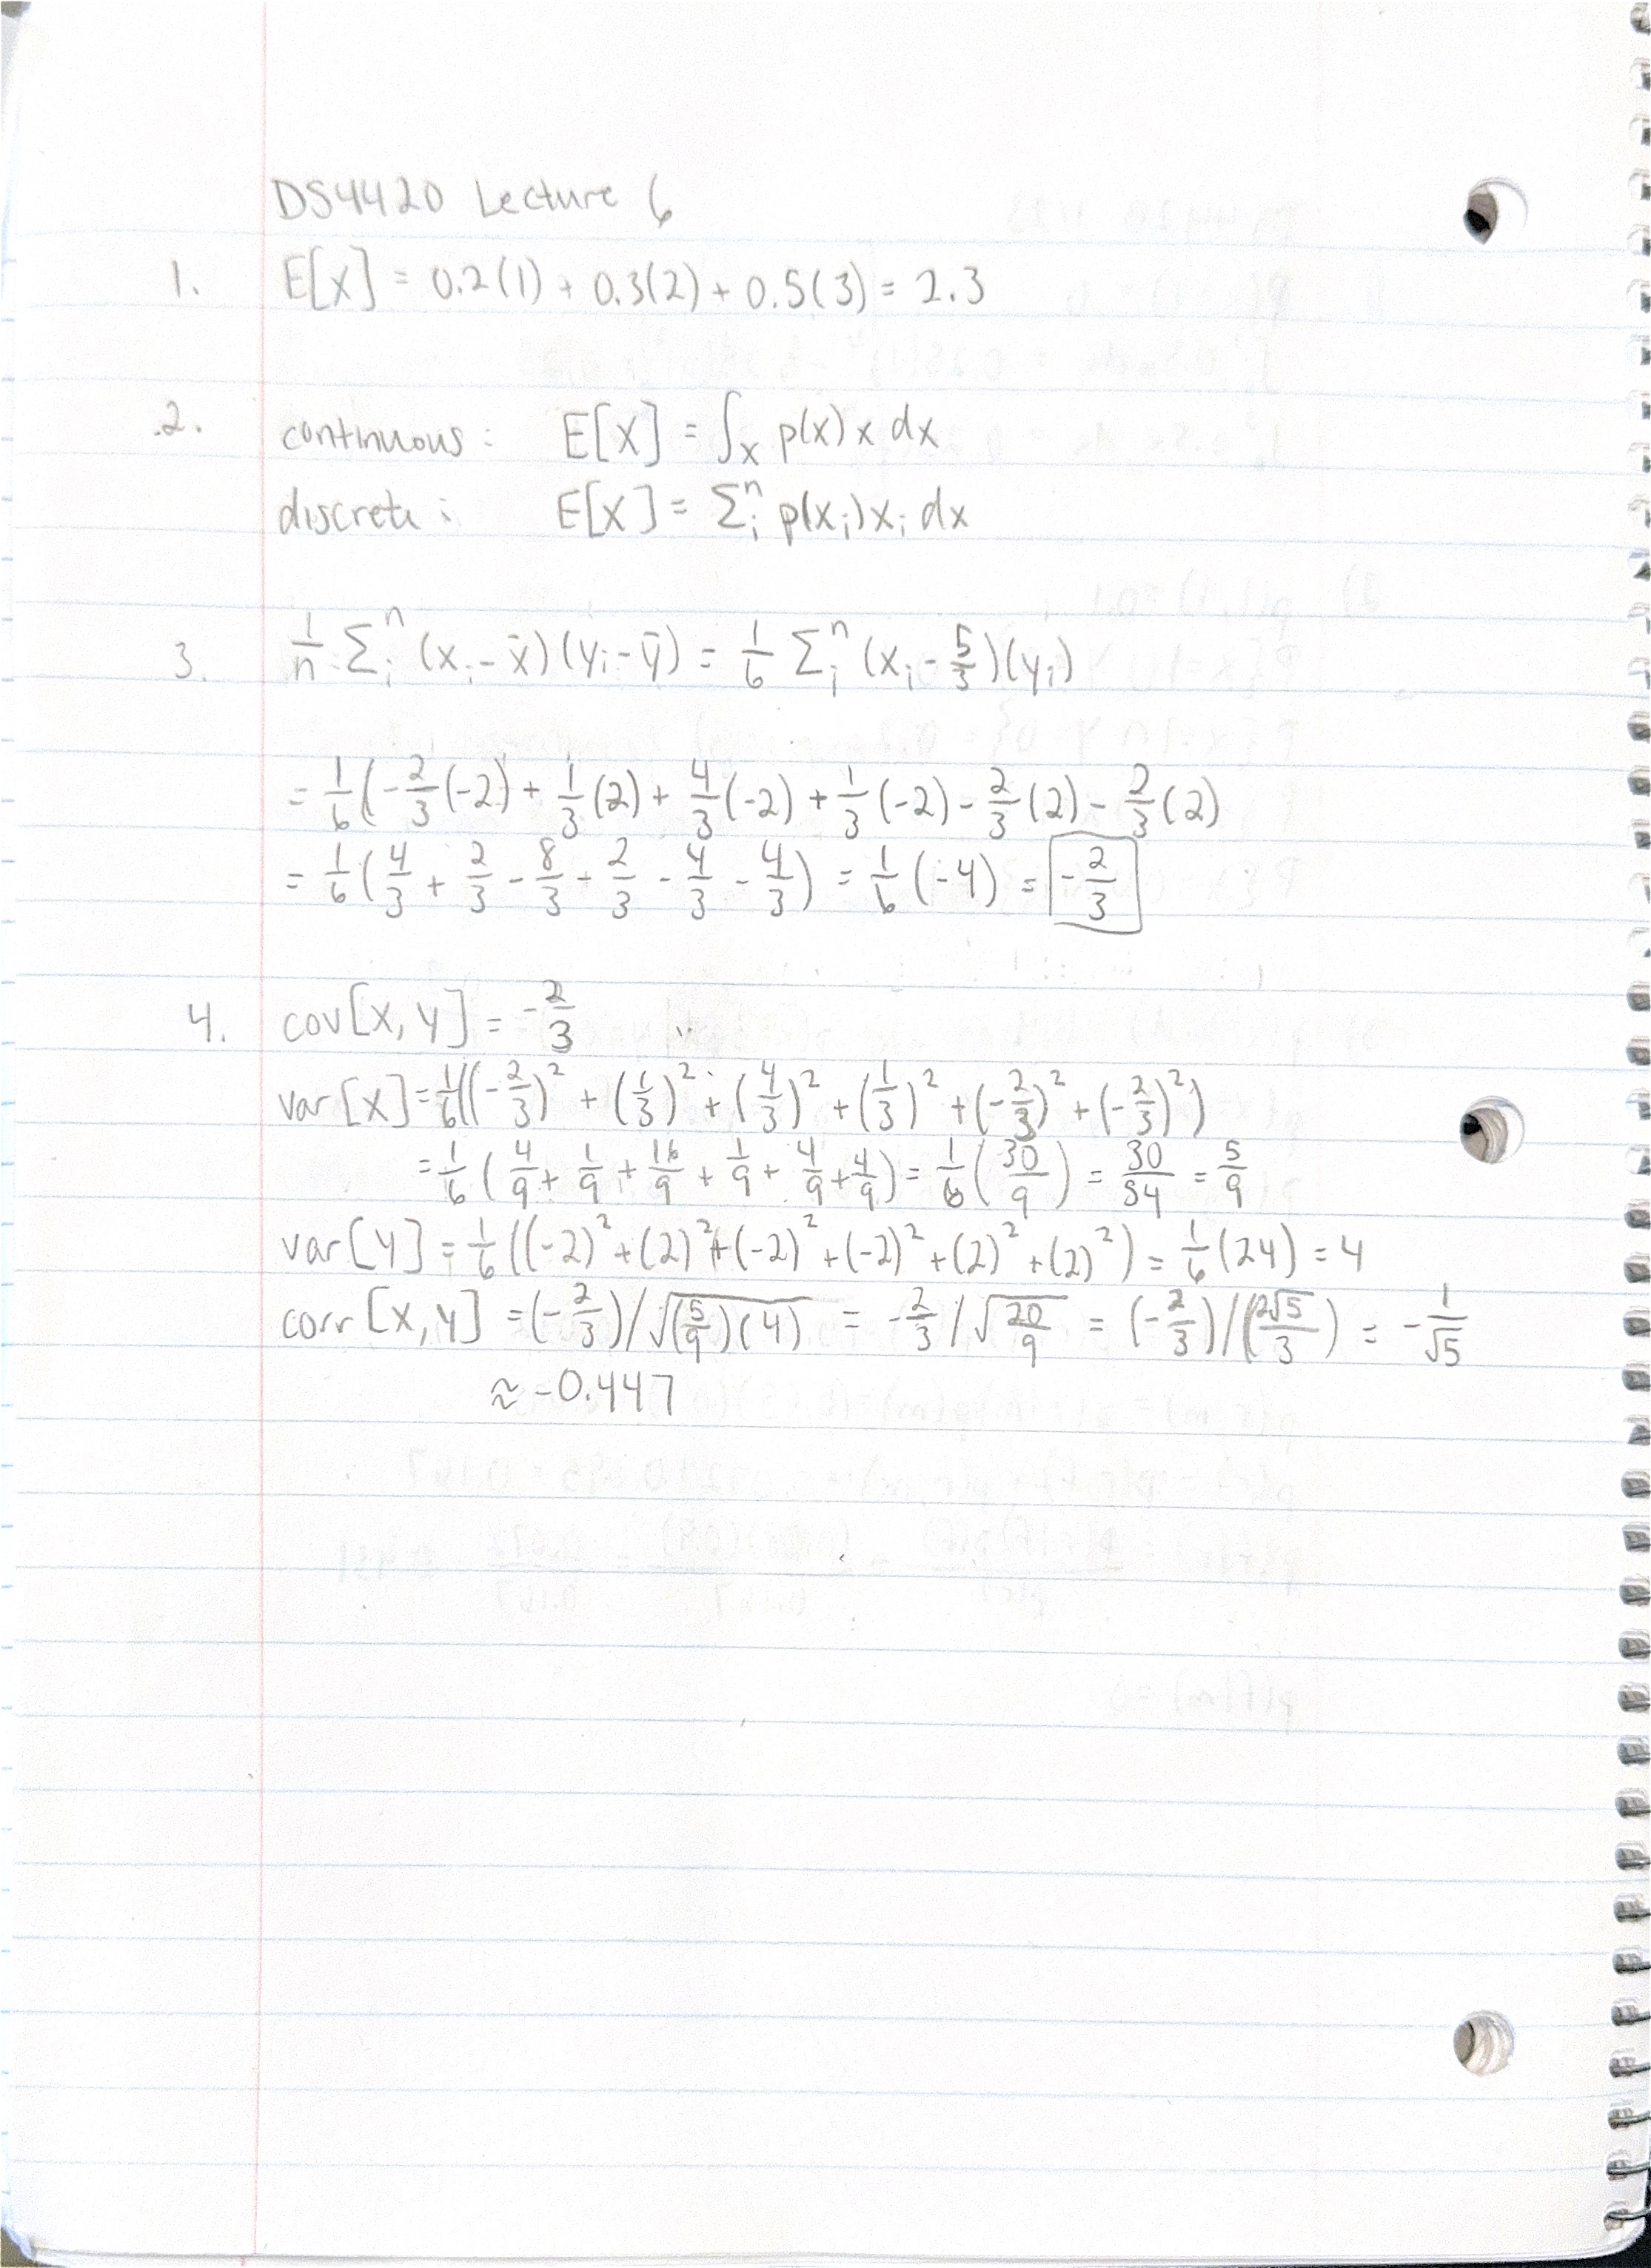 DS4420 Lecture 6
1. E[X] = 0.2(1) + 0.3(2) + 0.5(3) = 2.3
2. continuous: E[X] = ∫_X p(x) x dx
discrete: E[X] = Σ_i^n p(x_i) x_i dx
3. 1/n Σ_i^n (x_i - x̄)(y_i - ȳ) = 1/6 Σ_i^n (x_i - 5/3)(y_i)
= 1/6 (-2/3(-2) + 1/3(2) + 4/3(-2) + 1/3(-2) - 2/3(2) - 2/3(2)
= 1/6 (4/3 + 2/3 - 8/3 - 2/3 - 4/3 - 4/3) = 1/6 (-4) = -2/3
4. cov[X, Y] = -2/3
var[X] = 1/6((-2/3)² + (1/3)² + (4/3)² + (1/3)² + (-2/3)² + (-2/3)²)
= 1/6 (4/9 + 1/9 + 16/9 + 1/9 + 4/9 + 4/9) = 1/6 (30/9) = 30/54 = 5/9
var[Y] = 1/6 ((-2)² + (2)² + (-2)² + (-2)² + (2)² + (2)²) = 1/6 (24) = 4
corr[X, Y] = (-2/3)/√((5/9)(4)) = -2/3/√(20/9) = (-2/3)/(2√5/3) = -1/√5
≈ -0.447